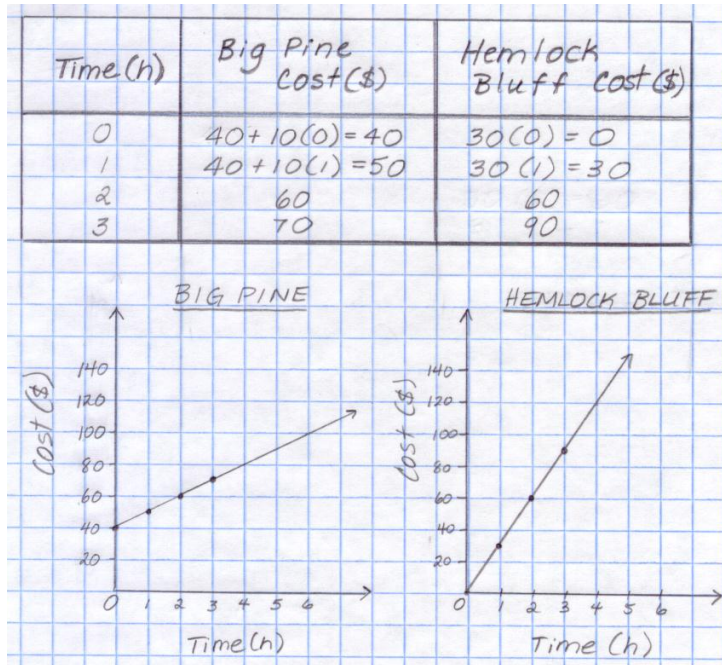 Time (h) Big Pine Cost ($) Hemlock Bluff Cost ($)
0 40 + 10(0) = 40 30(0) = 0
1 40 + 10(1) = 50 30(1) = 30
2 60 60
3 70 90
BIG PINE
Cost ($)
140
120
100
80
60
40
20
0 1 2 3 4 5 6
Time (h)
HEMLOCK BLUFF
Cost ($)
140
120
100
80
60
40
20
0 1 2 3 4 5 6
Time (h)